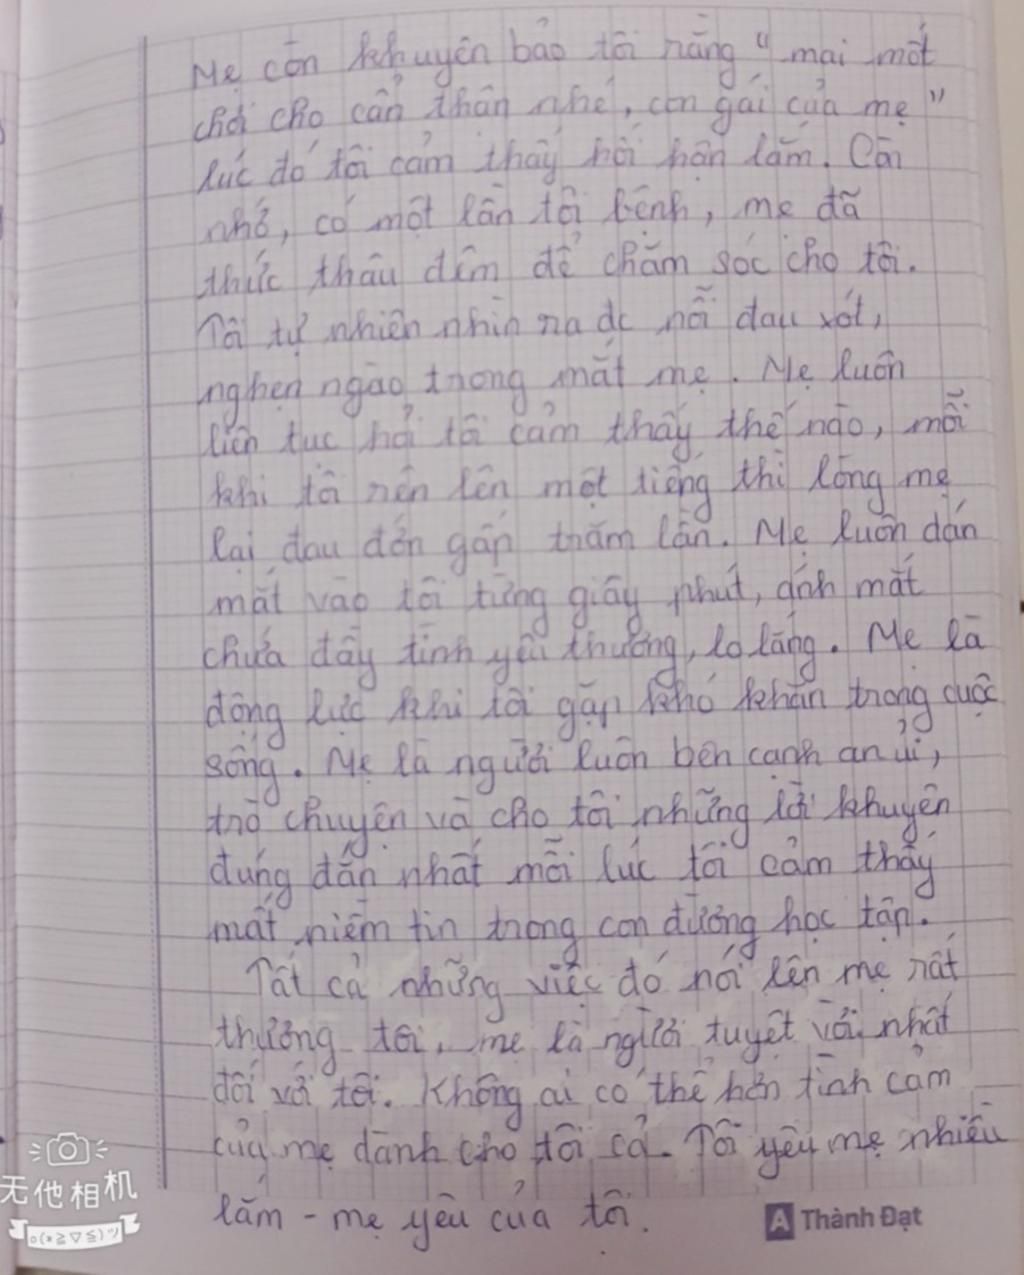 Mẹ còn khuyên bảo tôi rằng "mai mốt
chơi cho cẩn thận nhé, con gái của mẹ"
lúc đó tôi cảm thấy hối hận lắm. Còn
nhớ, có một lần tôi bệnh, mẹ đã
thức thâu đêm để chăm sóc cho tôi.
Tôi tự nhiên nhìn ra đc nỗi đau xót,
nghẹn ngào trong mắt mẹ. Mẹ luôn
liên tục hỏi tôi cảm thấy thế nào, mỗi
khi tôi rên lên một tiếng thì lòng mẹ
lại đau đớn gấp trăm lần. Mẹ luôn dán
mắt vào tôi từng giây phút, ánh mắt
chứa đầy tình yêu thương, lo lắng. Mẹ là
động lực khi tôi gặp khó khăn trong cuộc
sống. Mẹ là người luôn bên cạnh an ủi,
trò chuyện và cho tôi những lời khuyên
đúng đắn nhất mỗi lúc tôi cảm thấy
mất niềm tin trong con đường học tập.
Tất cả những việc đó nói lên mẹ rất
thương tôi, mẹ là người tuyệt vời nhất
đối với tôi. Không ai có thể hơn tình cảm
của mẹ dành cho tôi cả. Tôi yêu mẹ nhiều
lắm - mẹ yêu của tôi.
A Thành Đạt
无他相机
o(*≧▽≦)ツ